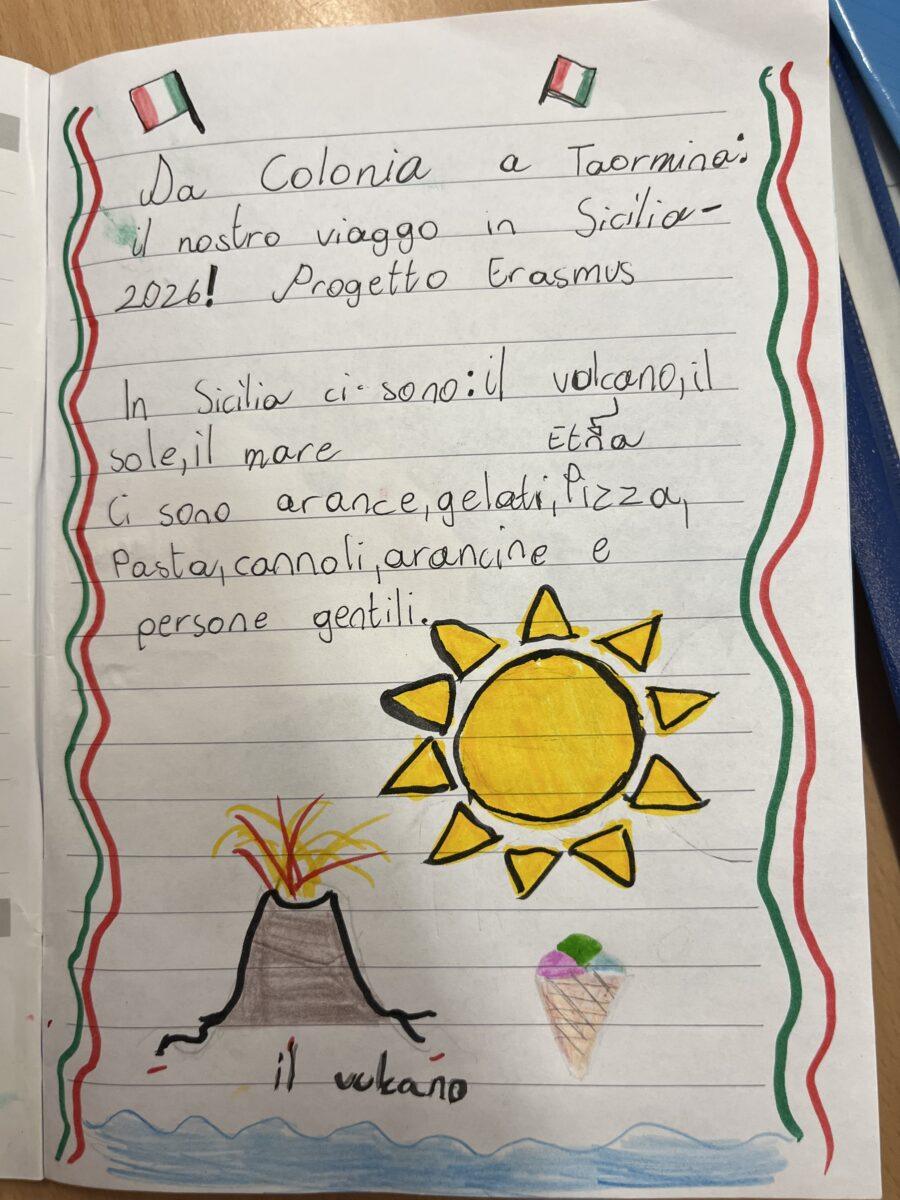 Da Colonia a Taormina:
il nostro viaggo in Sicilia-
2026! Progetto Erasmus
In Sicilia ci sono: il volcano, il
sole, il mare
Etna
Ci sono arance, gelati, Pizza,
Pasta, cannoli, arancine e
persone gentili.
il vulcano